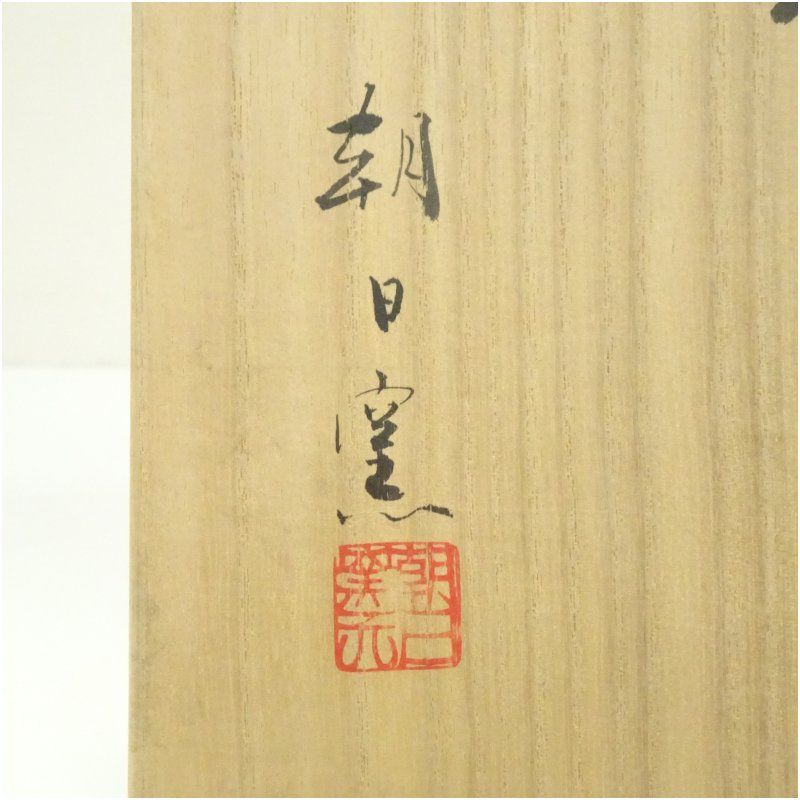 朝日窯